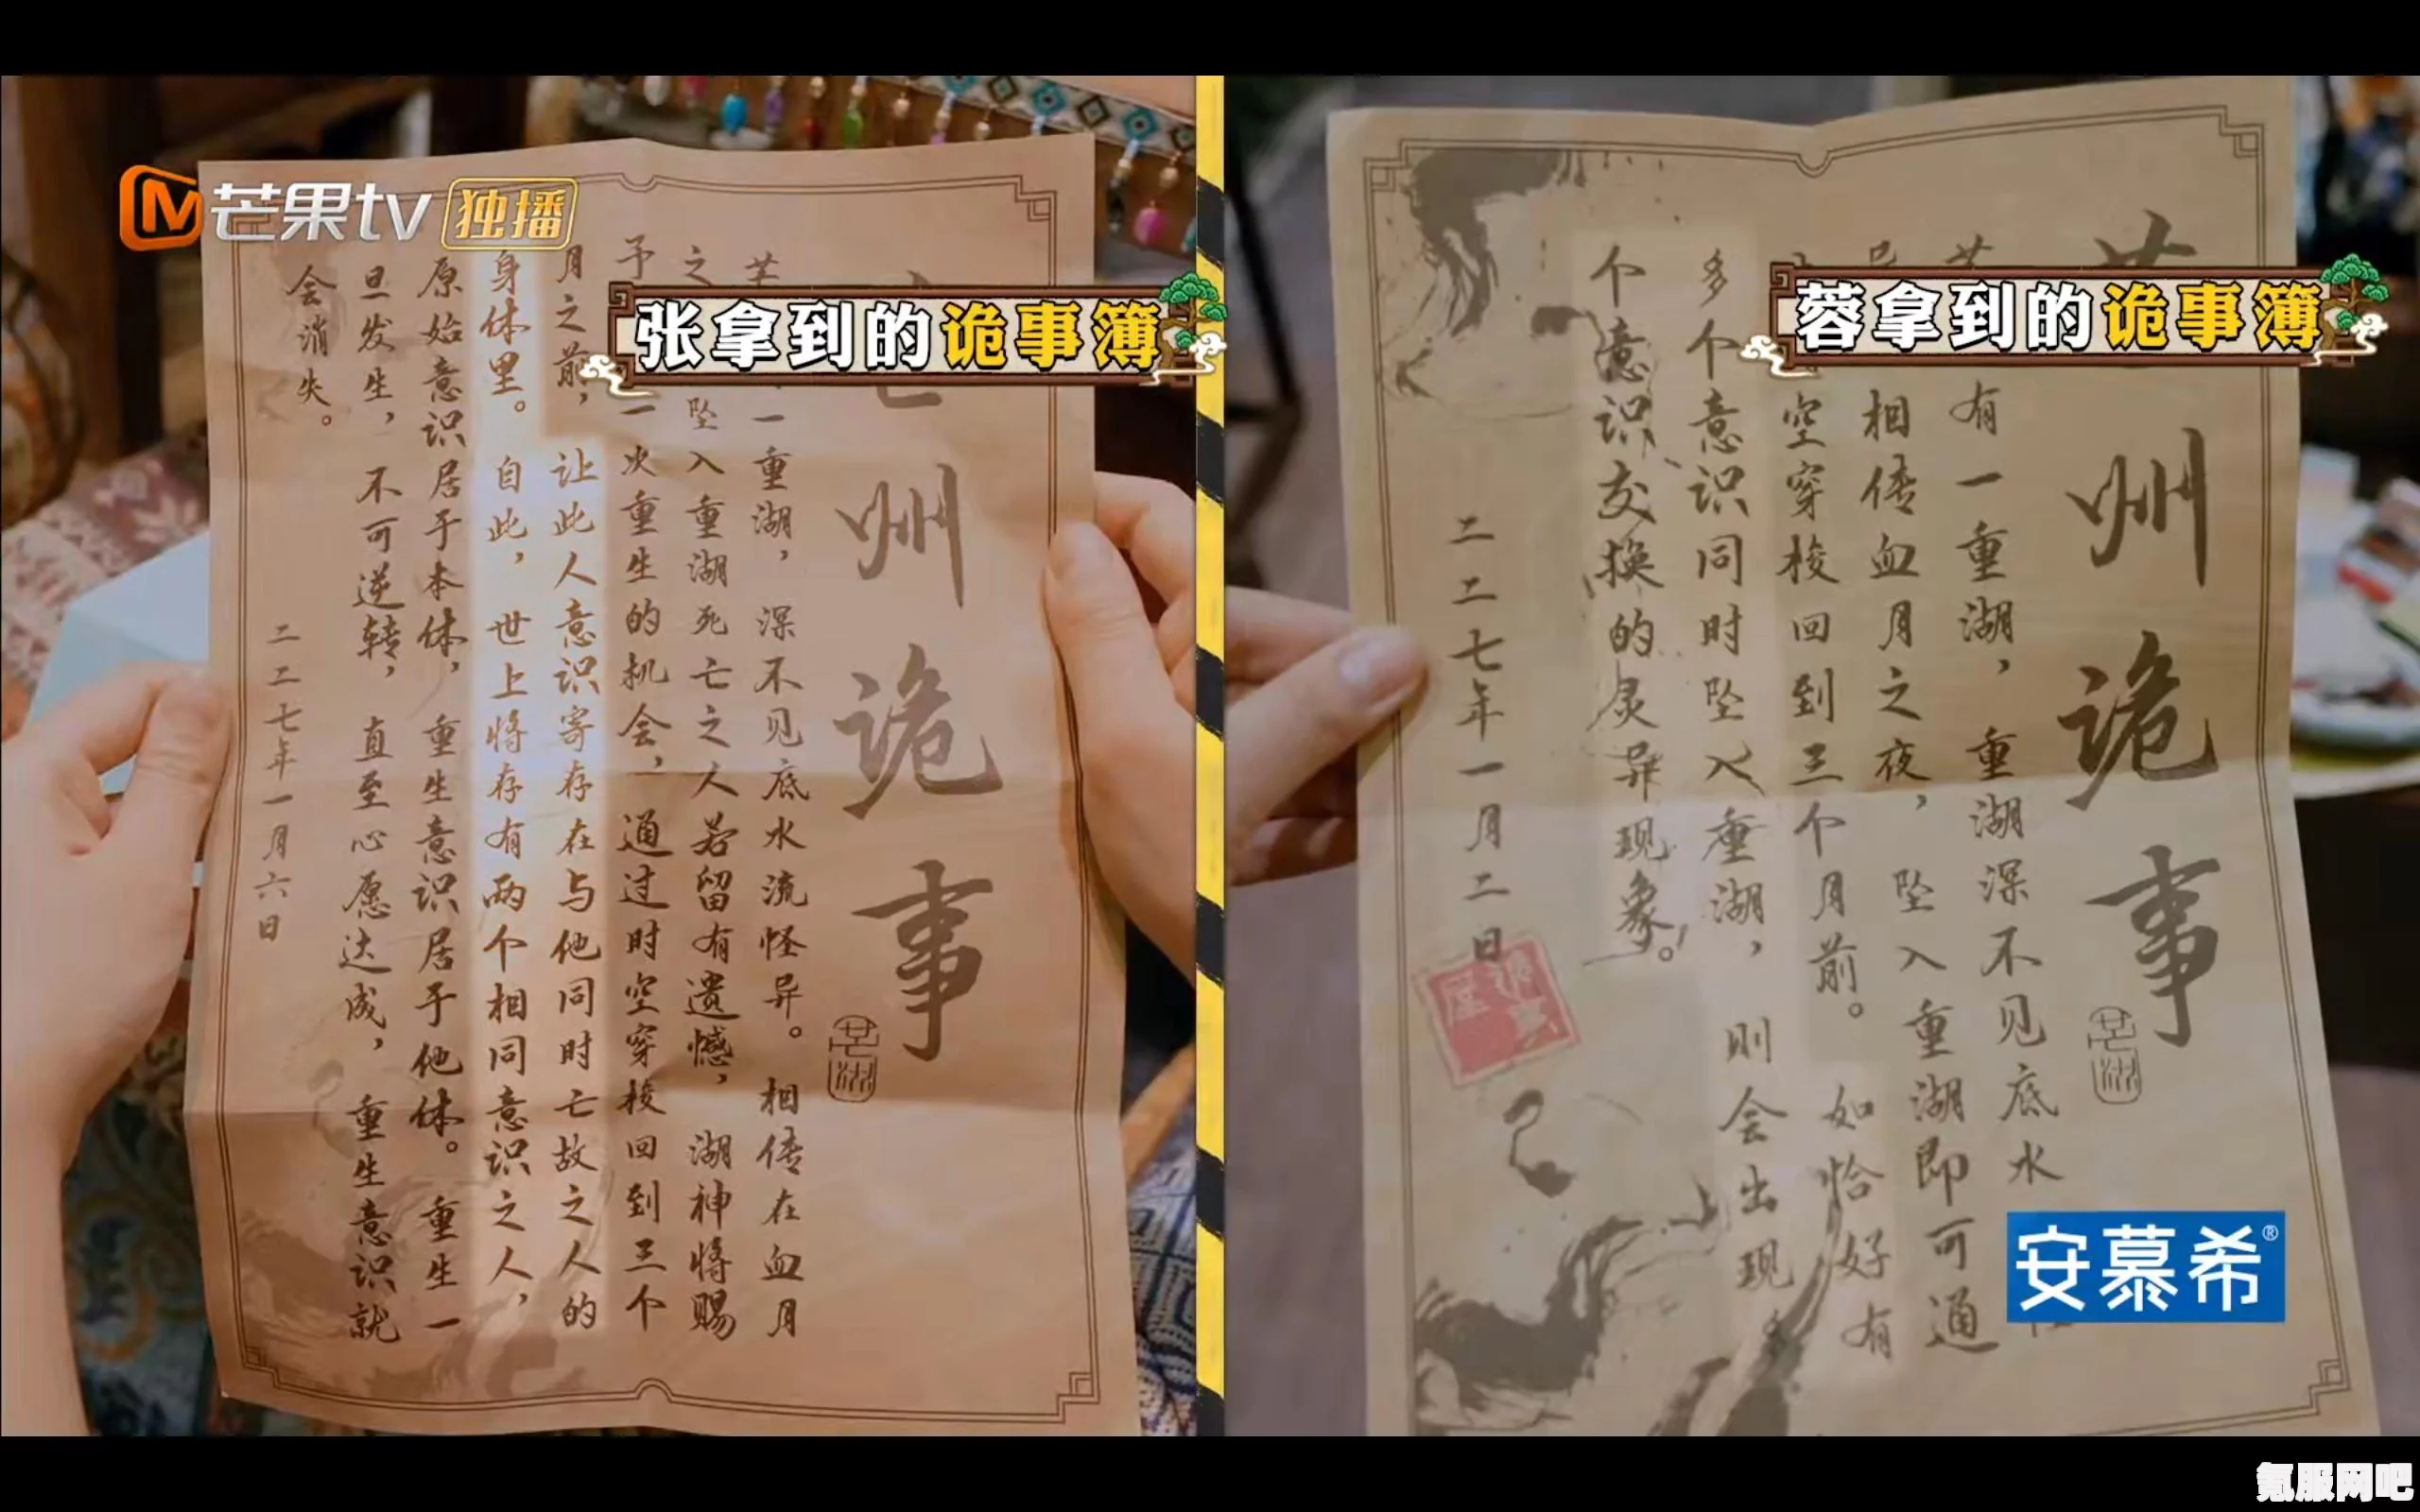 芒果tv 独播
张拿到的诡事簿
州诡事
一重湖，深不见底水流怪异。相传在血月
之 坠入重湖死亡之人若留有遗憾，湖神将赐
予 一次重生的机会，通过时空穿梭回到三个
月之前，让此人意识寄存在与他同时亡故之人的
身体里。自此，世上将存有两个相同意识之人，
原始意识居于本体，重生意识居于他体。重生一
旦发生，不可逆转，直至心愿达成，重生意识就
会消失。
二二七年一月六日
蓉拿到的诡事簿
州诡事
有一重湖，重湖深不见底水
相传血月之夜，坠入重湖即可通
空穿梭回到三个月前。如恰好有
多个意识同时坠入重湖，则会出现多
个意识交换的灵异现象。
二二七年一月二日
安慕希®
氪服网吧